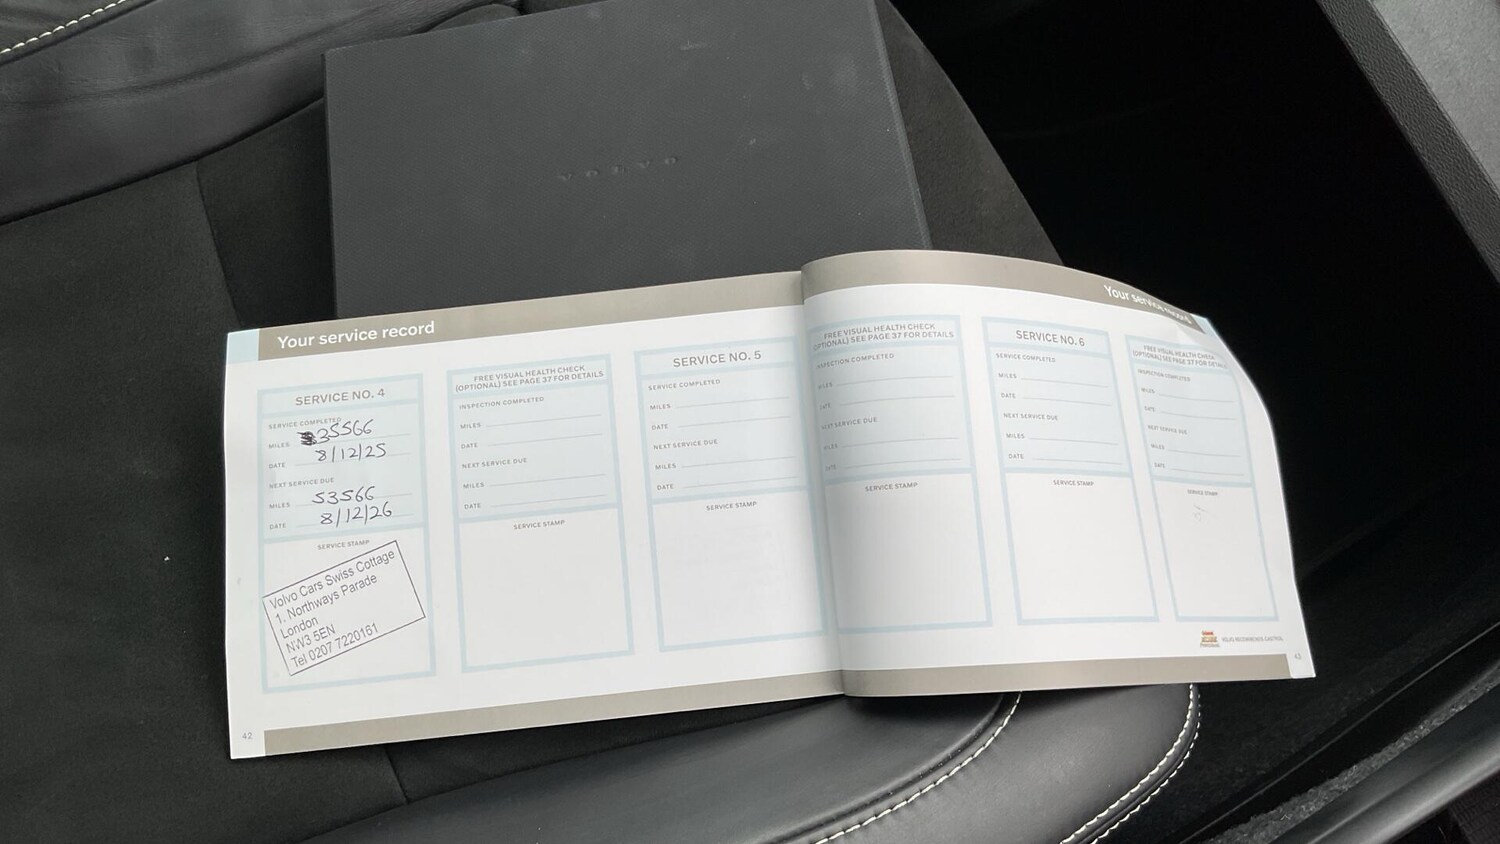 VOLVO
Your service record
SERVICE NO. 4
SERVICE COMPLETED
MILES 35566
DATE 8/12/25
NEXT SERVICE DUE
MILES 53566
DATE 8/12/26
SERVICE STAMP
Volvo Cars Swiss Cottage
1. Northways Parade
London
NW3 5EN
Tel 0207 7220161
42
FREE VISUAL HEALTH CHECK
(OPTIONAL) SEE PAGE 37 FOR DETAILS
INSPECTION COMPLETED
MILES
DATE
NEXT SERVICE DUE
MILES
DATE
SERVICE STAMP
SERVICE NO. 5
SERVICE COMPLETED
MILES
DATE
NEXT SERVICE DUE
MILES
DATE
SERVICE STAMP
Your service record
FREE VISUAL HEALTH CHECK
(OPTIONAL) SEE PAGE 37 FOR DETAILS
INSPECTION COMPLETED
MILES
DATE
NEXT SERVICE DUE
MILES
DATE
SERVICE STAMP
SERVICE NO. 6
SERVICE COMPLETED
MILES
DATE
NEXT SERVICE DUE
MILES
DATE
SERVICE STAMP
FREE VISUAL HEALTH CHECK
(OPTIONAL) SEE PAGE 37 FOR DETAILS
INSPECTION COMPLETED
MILES
DATE
NEXT SERVICE DUE
MILES
DATE
SERVICE STAMP
VOLVO RECOMMENDS CASTROL
43